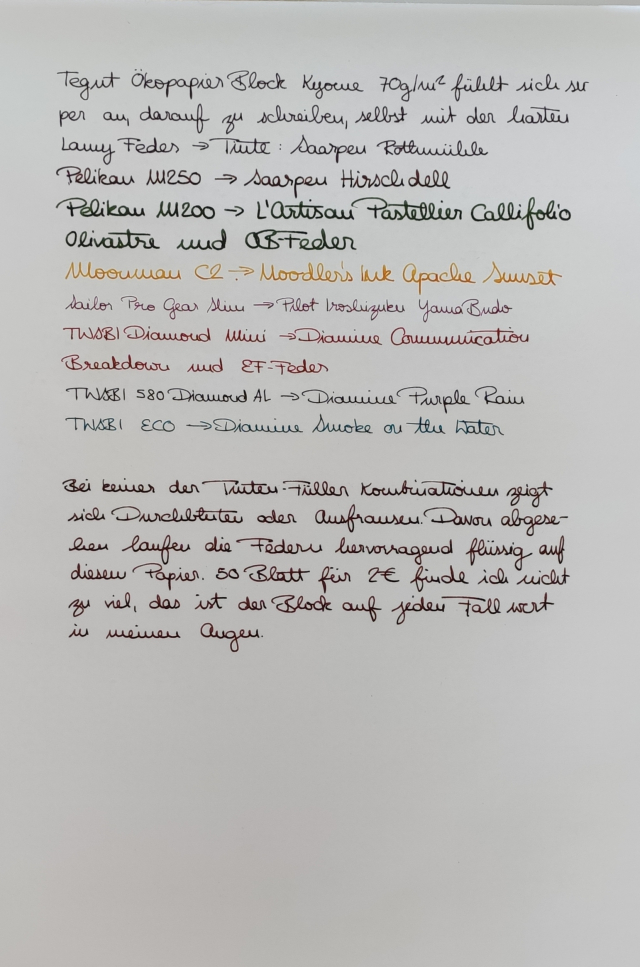 Tegut Ökopapier Block Kyome 70g/m² fühlt sich su
per an, darauf zu schreiben, selbst mit der harten
Lamy Feder → Tinte: Saarpen Rothmühle
Pelikan M250 → Saarpen Hirschdell
Pelikan M200 → L'Artisan Pastellier Callifolio
Olivastre und OB-Feder
Moonman C2 → Noodler's Ink Apache Sunset
Sailor Pro Gear Slim → Pilot Iroshizuku Yama Budo
TWSBI Diamond Mini → Diamine Communication
Breakdown und EF-Feder
TWSBI 580 Diamond AL → Diamine Purple Rain
TWSBI ECO → Diamine Smoke on the Water
Bei keiner der Tinten-Füller Kombinationen zeigt
sich Durchbluten oder Ausfransen. Davon abgese-
hen laufen die Federn hervorragend flüssig auf
diesem Papier. 50 Blatt für 2€ finde ich nicht
zu viel, das ist der Block auf jeden Fall wert
in meinen Augen.